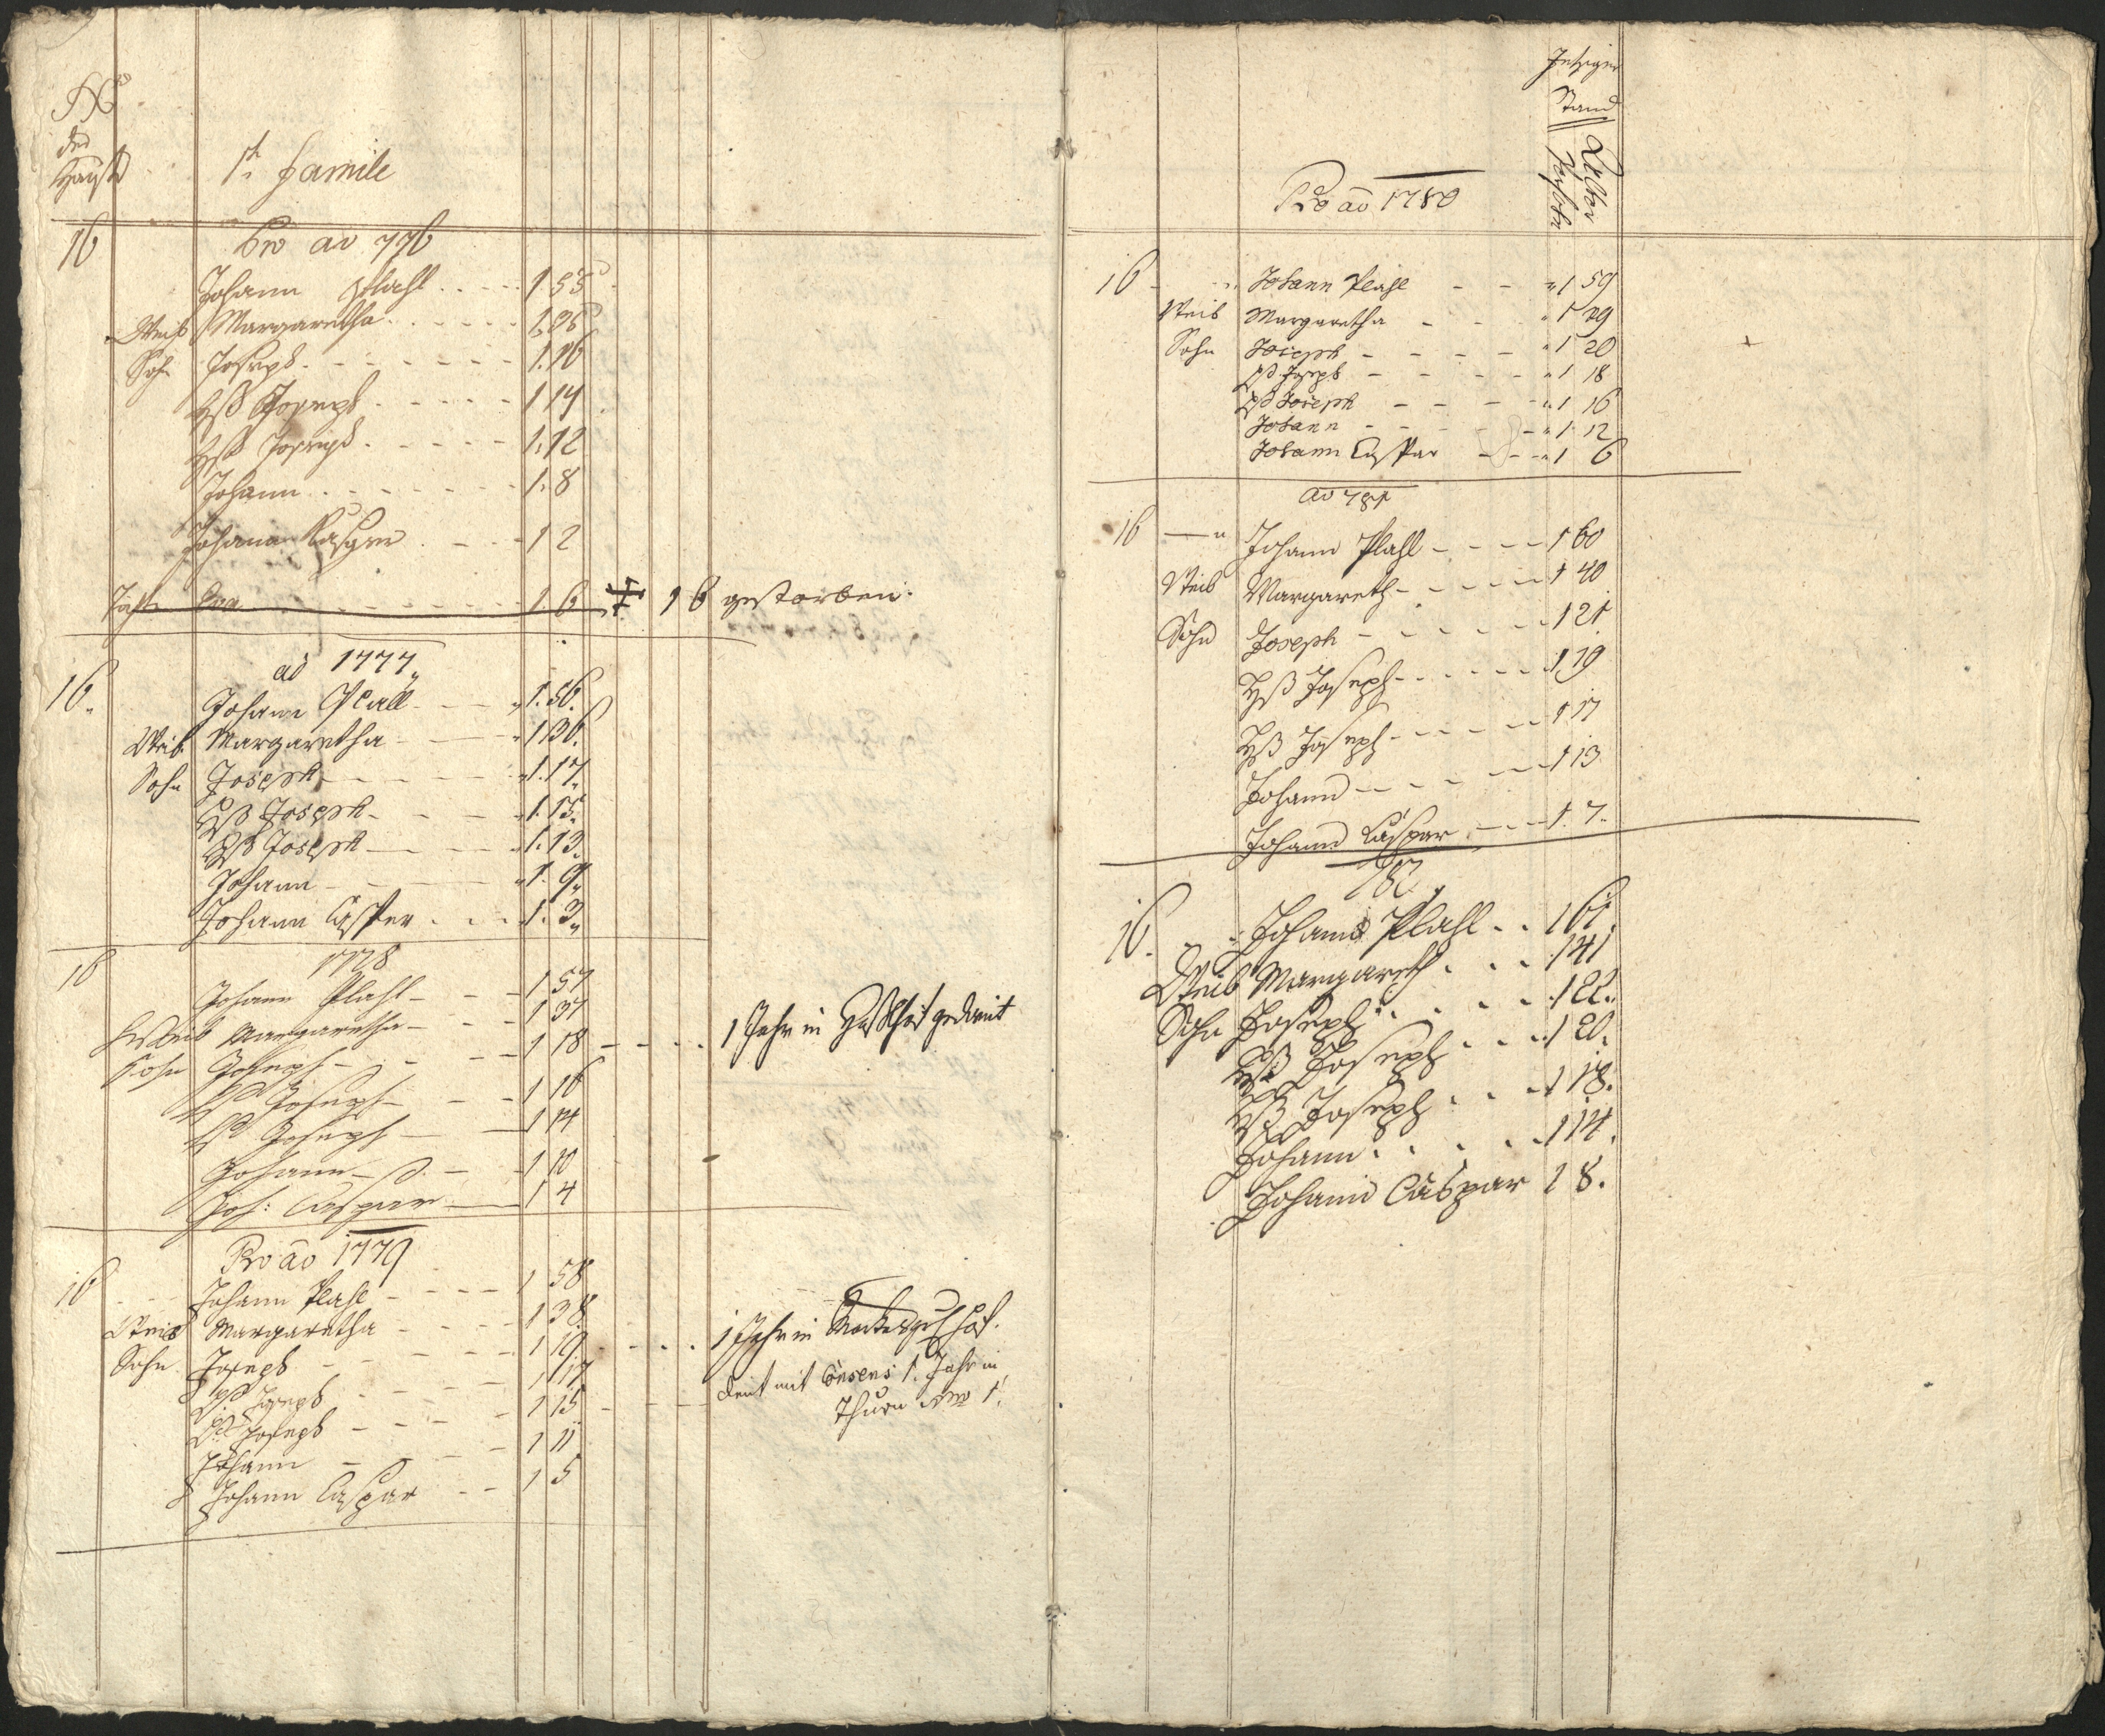 Nro
des
Hauses
1te Famile
16
Pro ao 776
Johann Plahl 1 55
Weib Margaretha 1.35
Sohn Joseph 1.16
Joseph 1 14
Joseph 1.12
Johann 1.8
Johann Casper 1 2
Eva 1.6 16 gestorben.
ao 1777
16. Johann Plall 1.56.
Weib Margaretha 1 36.
Sohn Joseph 1.17.
Joseph 1.15.
Joseph 1.13.
Johann 1.9.
Johann Casper 1.3.
16 1778
Johann Plahl 1 57
Weib Margaretha 1 37
Sohn Joseph 1 18 1 Jahr in
Joseph 1 16
Joseph 1 14
Johann 1 10
Joh: Caspar 1 4
Pro ao 1779
16 Johann Plahl 1 58
Weib Margaretha 1 38.
Sohn Joseph 1 19 1 Jahr in
Joseph 1 17
Joseph 1 15 dient mit Consens 1. Jahr in
Thurn Nro 1.
Johann 1 11
Johann Caspar 1 5
Jetziger
Stand
Pro ao 1780
16 Johann Plahl 1 59
Weib Margaretha 1 39
Sohn Joseph 1 20 +
Joseph 1 18
Joseph 1 16
Johann 1 12
Johann Caspar 1 6
ao 781
16 Johann Plahl 1 60
Weib Margareth 1 40
Sohn Joseph 1 21
Joseph 1 19
Joseph 1 17
Johann 1 13
Johann Caspar 1.7.
782
16. Johann Plahl 1 61.
Weib Margareth 1 41
Sohn Joseph 1 22.
Joseph 1 20.
Joseph 1 18.
Johann 1 14.
Johann Caspar 1 8.